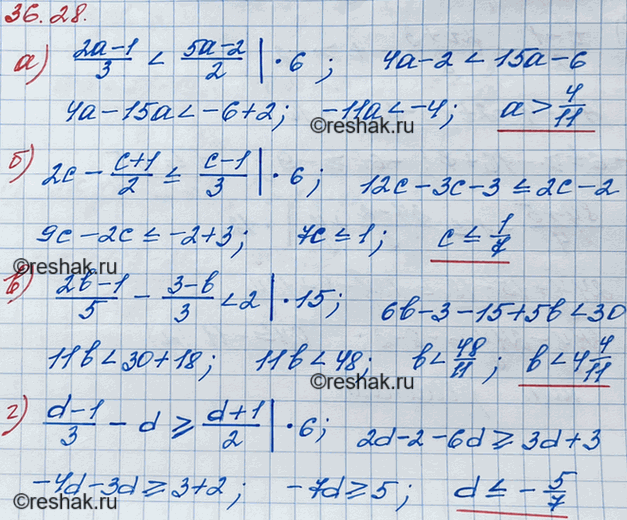 36.28.
а) (2a-1)/3 < (5a-2)/2 | · 6 ; 4a-2 < 15a-6
4a-15a < -6+2; -11a < -4; a > 4/11
©reshak.ru
б) 2c - (c+1)/2 ≤ (c-1)/3 | · 6 ; 12c-3c-3 ≤ 2c-2
9c-2c ≤ -2+3; 7c ≤ 1; c ≤ 1/7
©reshak.ru
в) (2b-1)/5 - (3-b)/3 < 2 | · 15; 6b-3-15+5b < 30
11b < 30+18; 11b < 48; b < 48/11 ; b < 4 4/11
©reshak.ru
г) (d-1)/3 - d ≥ (d+1)/2 | · 6; 2d-2-6d ≥ 3d+3
-4d-3d ≥ 3+2; -7d ≥ 5; d ≤ -5/7
©reshak.ru